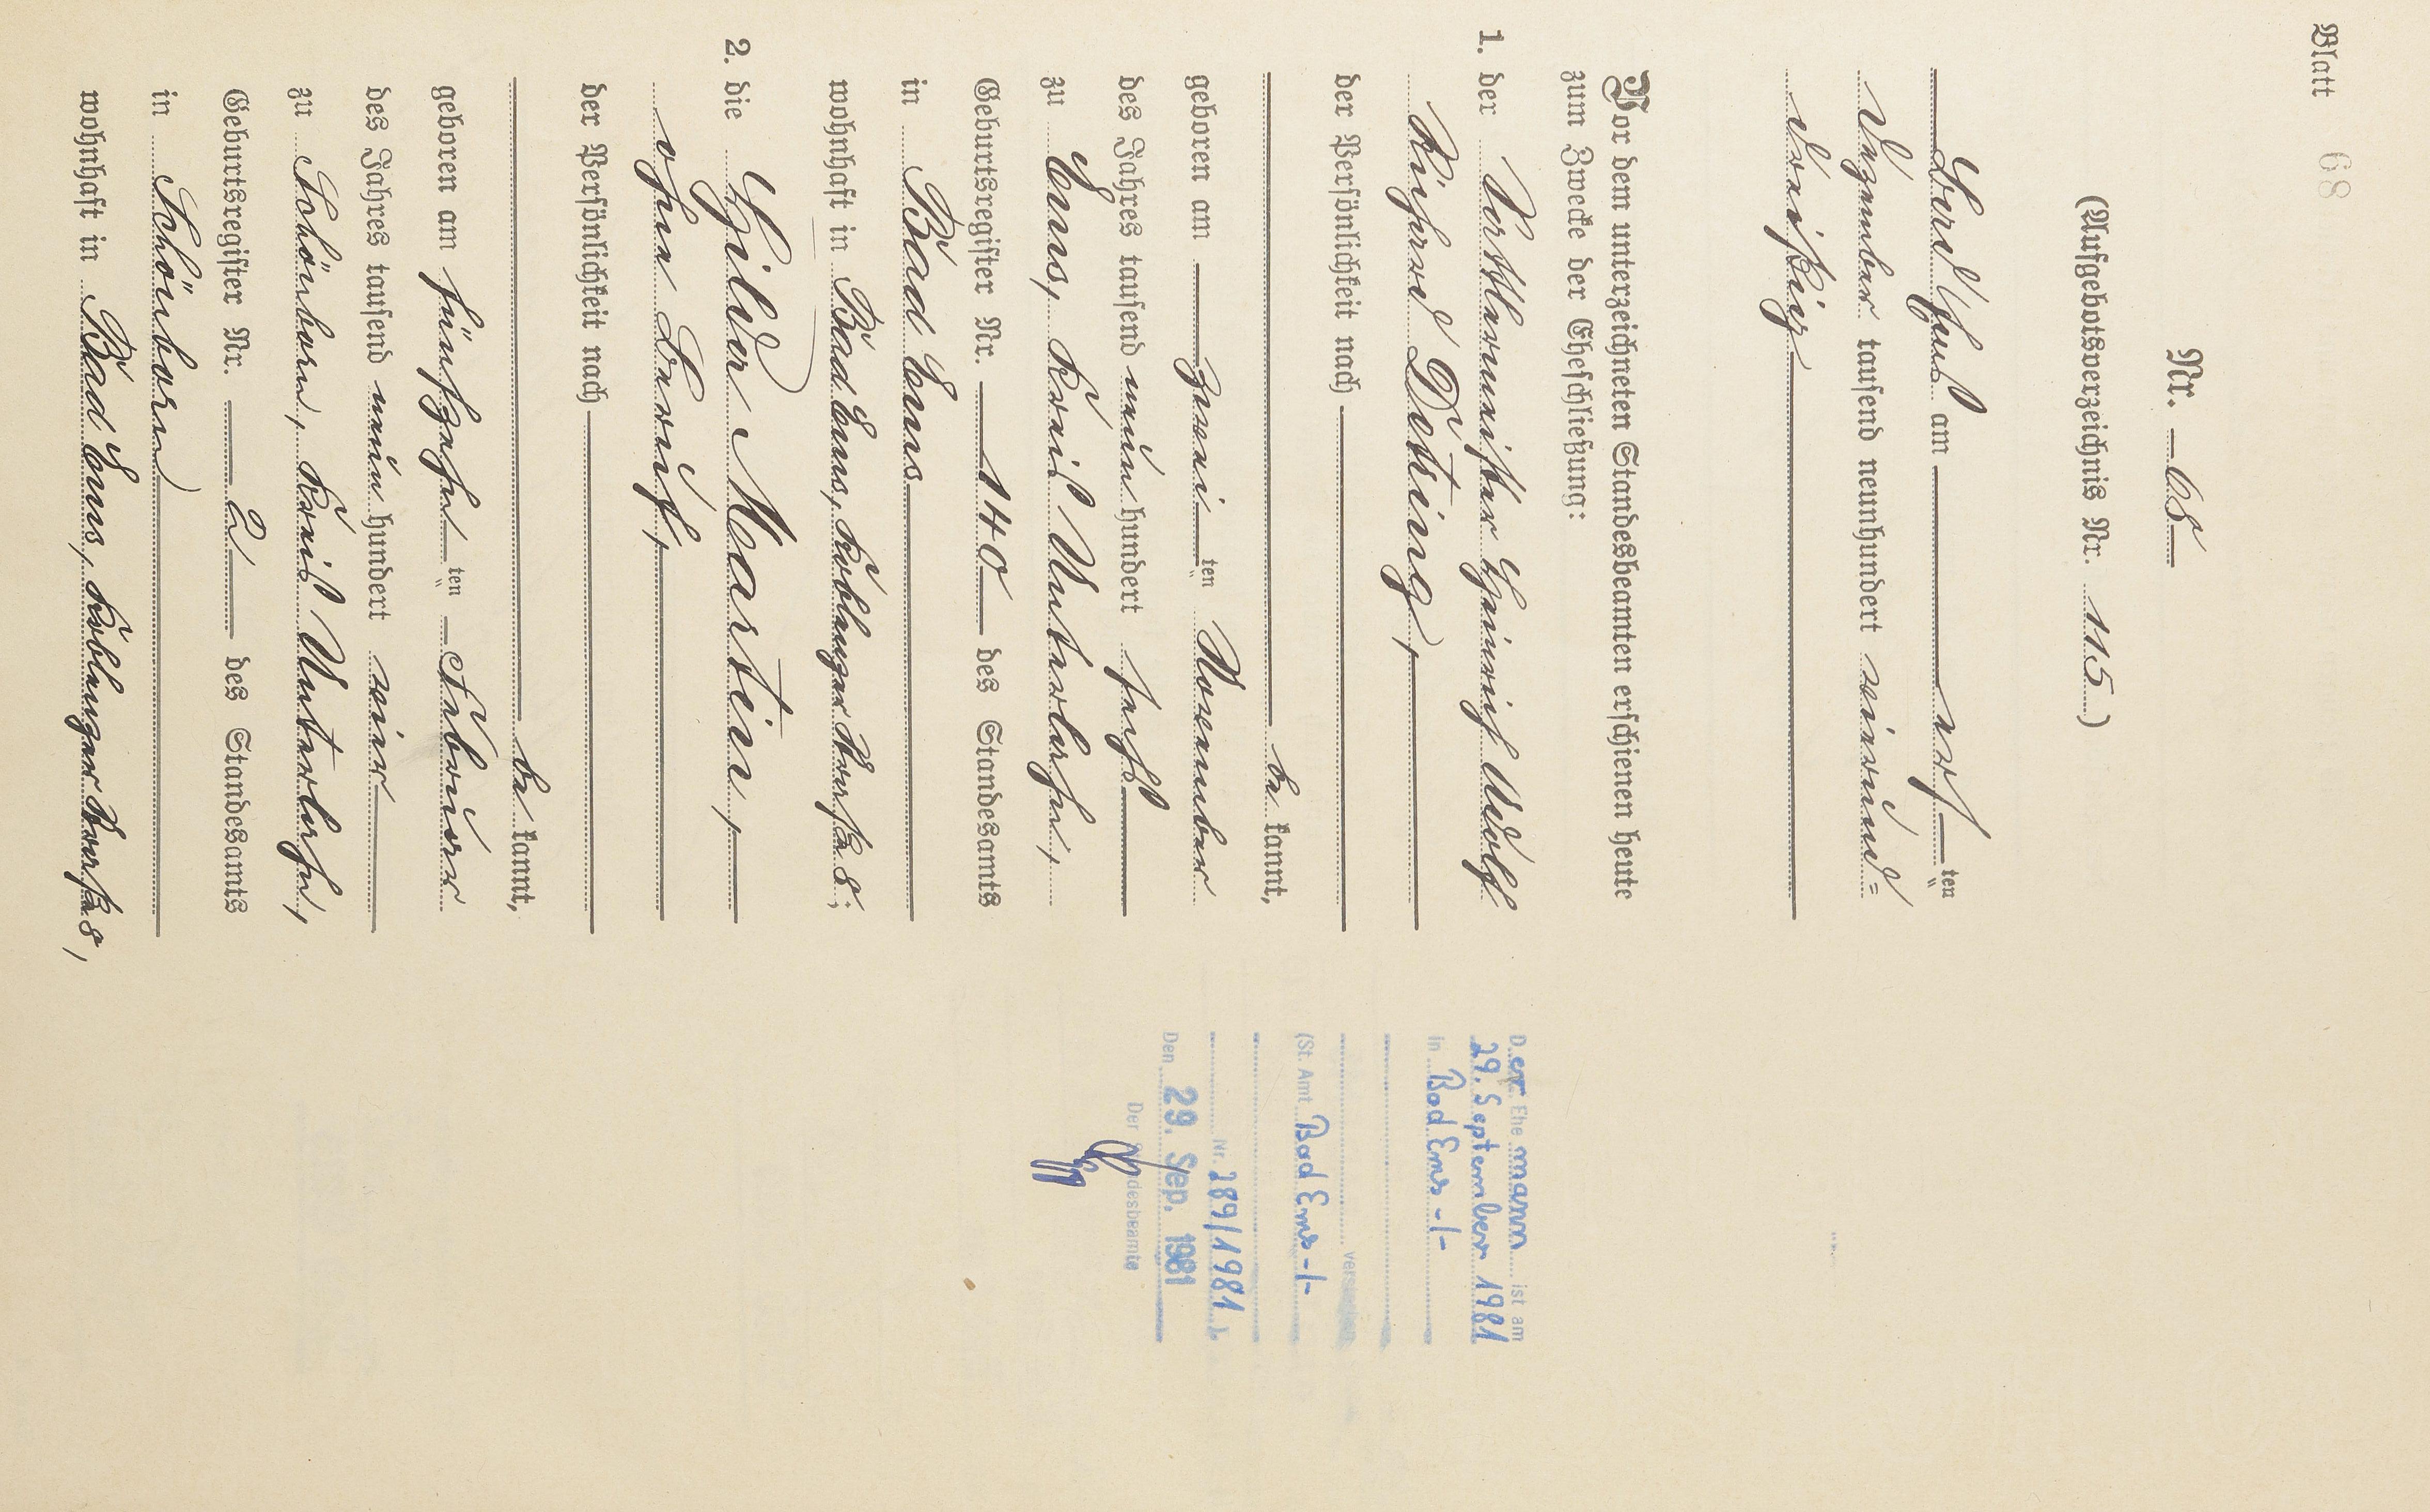 Blatt 68
Nr. 68
(Aufgebotsverzeichnis Nr. 115)
Bad Ems am acht ten
Dezember tausend neunhundert vierund=
dreißig
Vor dem unterzeichneten Standesbeamten erschienen heute
zum Zwecke der Eheschließung:
1. der Heinrich Adolf
Richard
der Persönlichkeit nach
be kannt,
geboren am zwei ten November
des Jahres tausend neun hundert sechs
zu Ems, Kreis Unterlahn,
Geburtsregister Nr. 140 des Standesamts
in Bad Ems
wohnhaft in Bad Ems, Koblenzer Straße 8;
2. die Hilda Martin,
ohne Beruf,
der Persönlichkeit nach
be kannt,
geboren am fünfzehn ten Februar
des Jahres tausend neun hundert vier
zu Schönborn, Kreis Unterlahn,
Geburtsregister Nr. 2 des Standesamts
in Schönborn
wohnhaft in Bad Ems, Koblenzer Straße 8,
Der Ehe mann ist am
29. September 1981
in Bad Ems -/-
verstorben
(St. Amt Bad Ems -/-
Nr. 289/1981.)
Den 29. Sep. 1981
Der Standesbeamte